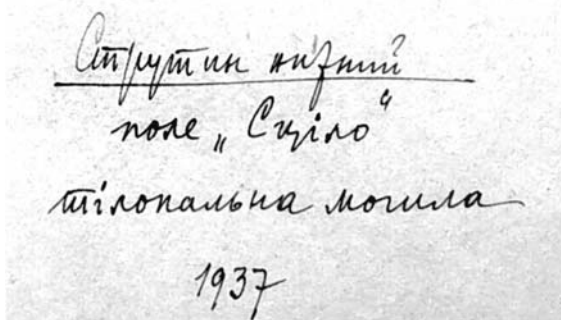 Струтин нижний
поле „Сціло“
тілопальна могила
1937